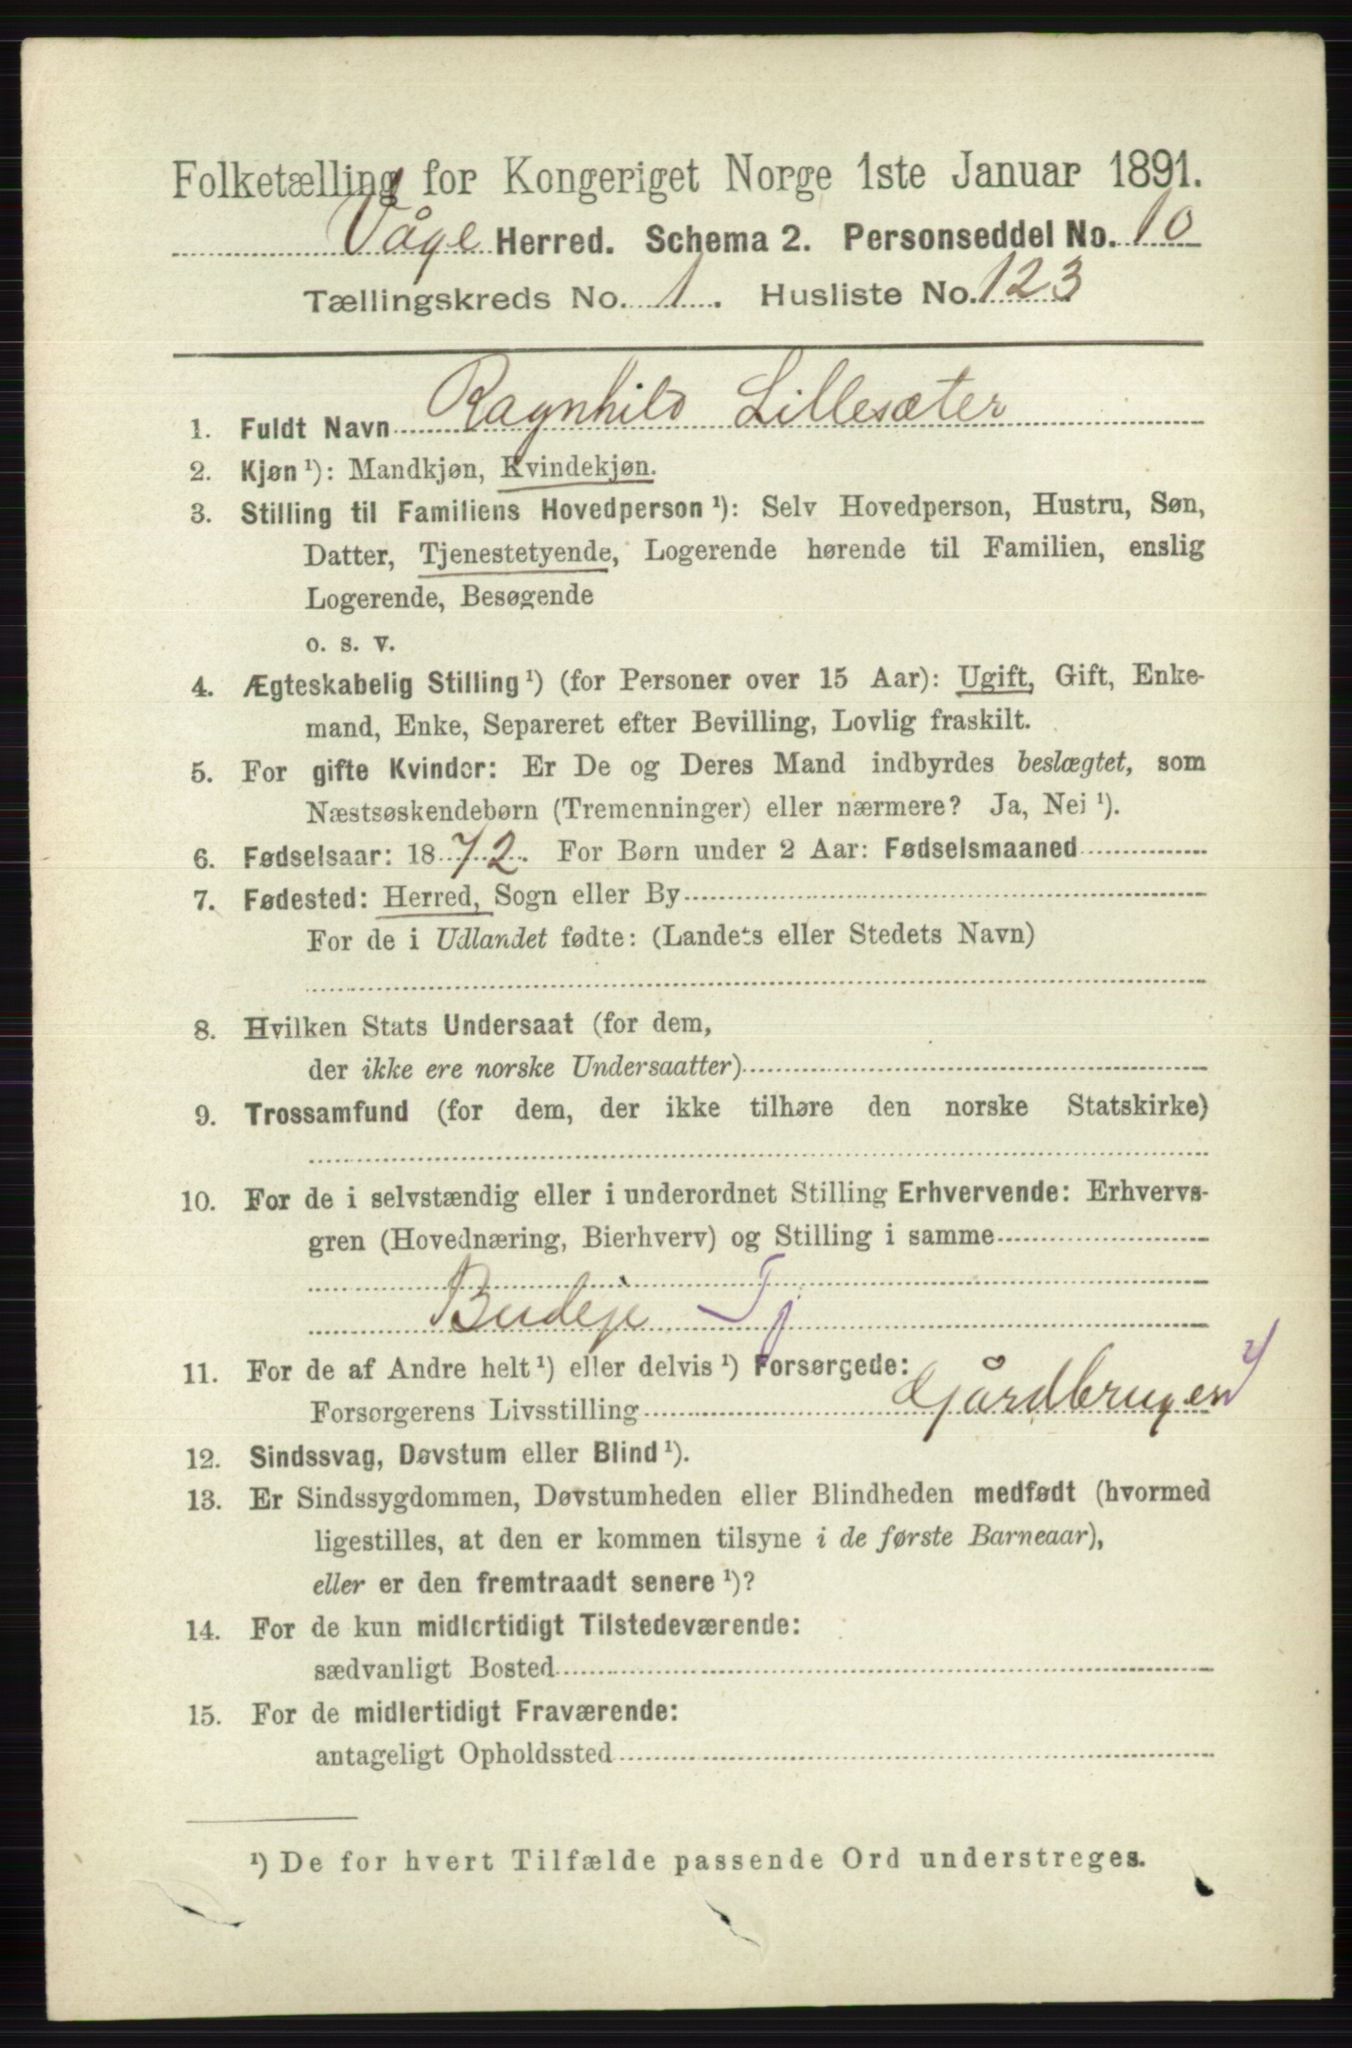 Folketælling for Kongeriget Norge 1ste Januar 1891.
Våge Herred. Schema 2. Personseddel No. 10
Tællingskreds No. 1. Husliste No. 123
1. Fuldt Navn Ragnhild Lillesæter
2. Kjøn ¹): Mandkjøn, Kvindekjøn.
3. Stilling til Familiens Hovedperson ¹): Selv Hovedperson, Hustru, Søn,
Datter, Tjenestetyende, Logerende hørende til Familien, enslig
Logerende, Besøgende
o. s. v.
4. Ægteskabelig Stilling ¹) (for Personer over 15 Aar): Ugift, Gift, Enke-
mand, Enke, Separeret efter Bevilling, Lovlig fraskilt.
5. For gifte Kvinder: Er De og Deres Mand indbyrdes beslægtet, som
Næstsøskendebørn (Tremenninger) eller nærmere? Ja, Nei ¹).
6. Fødselsaar: 1872. For Børn under 2 Aar: Fødselsmaaned
7. Fødested: Herred, Sogn eller By
For de i Udlandet fødte: (Landets eller Stedets Navn)
8. Hvilken Stats Undersaat (for dem,
der ikke ere norske Undersaatter)
9. Trossamfund (for dem, der ikke tilhøre den norske Statskirke)
10. For de i selvstændig eller i underordnet Stilling Erhvervende: Erhvervs-
gren (Hovednæring, Bierhverv) og Stilling i samme
Budeje Tj
11. For de af Andre helt ¹) eller delvis ¹) Forsørgede:
Forsørgerens Livsstilling Gårdbruger
12. Sindssvag, Døvstum eller Blind ¹).
13. Er Sindssygdommen, Døvstumheden eller Blindheden medfødt (hvormed
ligestilles, at den er kommen tilsyne i de første Barneaar),
eller er den fremtraadt senere ¹)?
14. For de kun midlertidigt Tilstedeværende:
sædvanligt Bosted
15. For de midlertidigt Fraværende:
antageligt Opholdssted
¹) De for hvert Tilfælde passende Ord understreges.